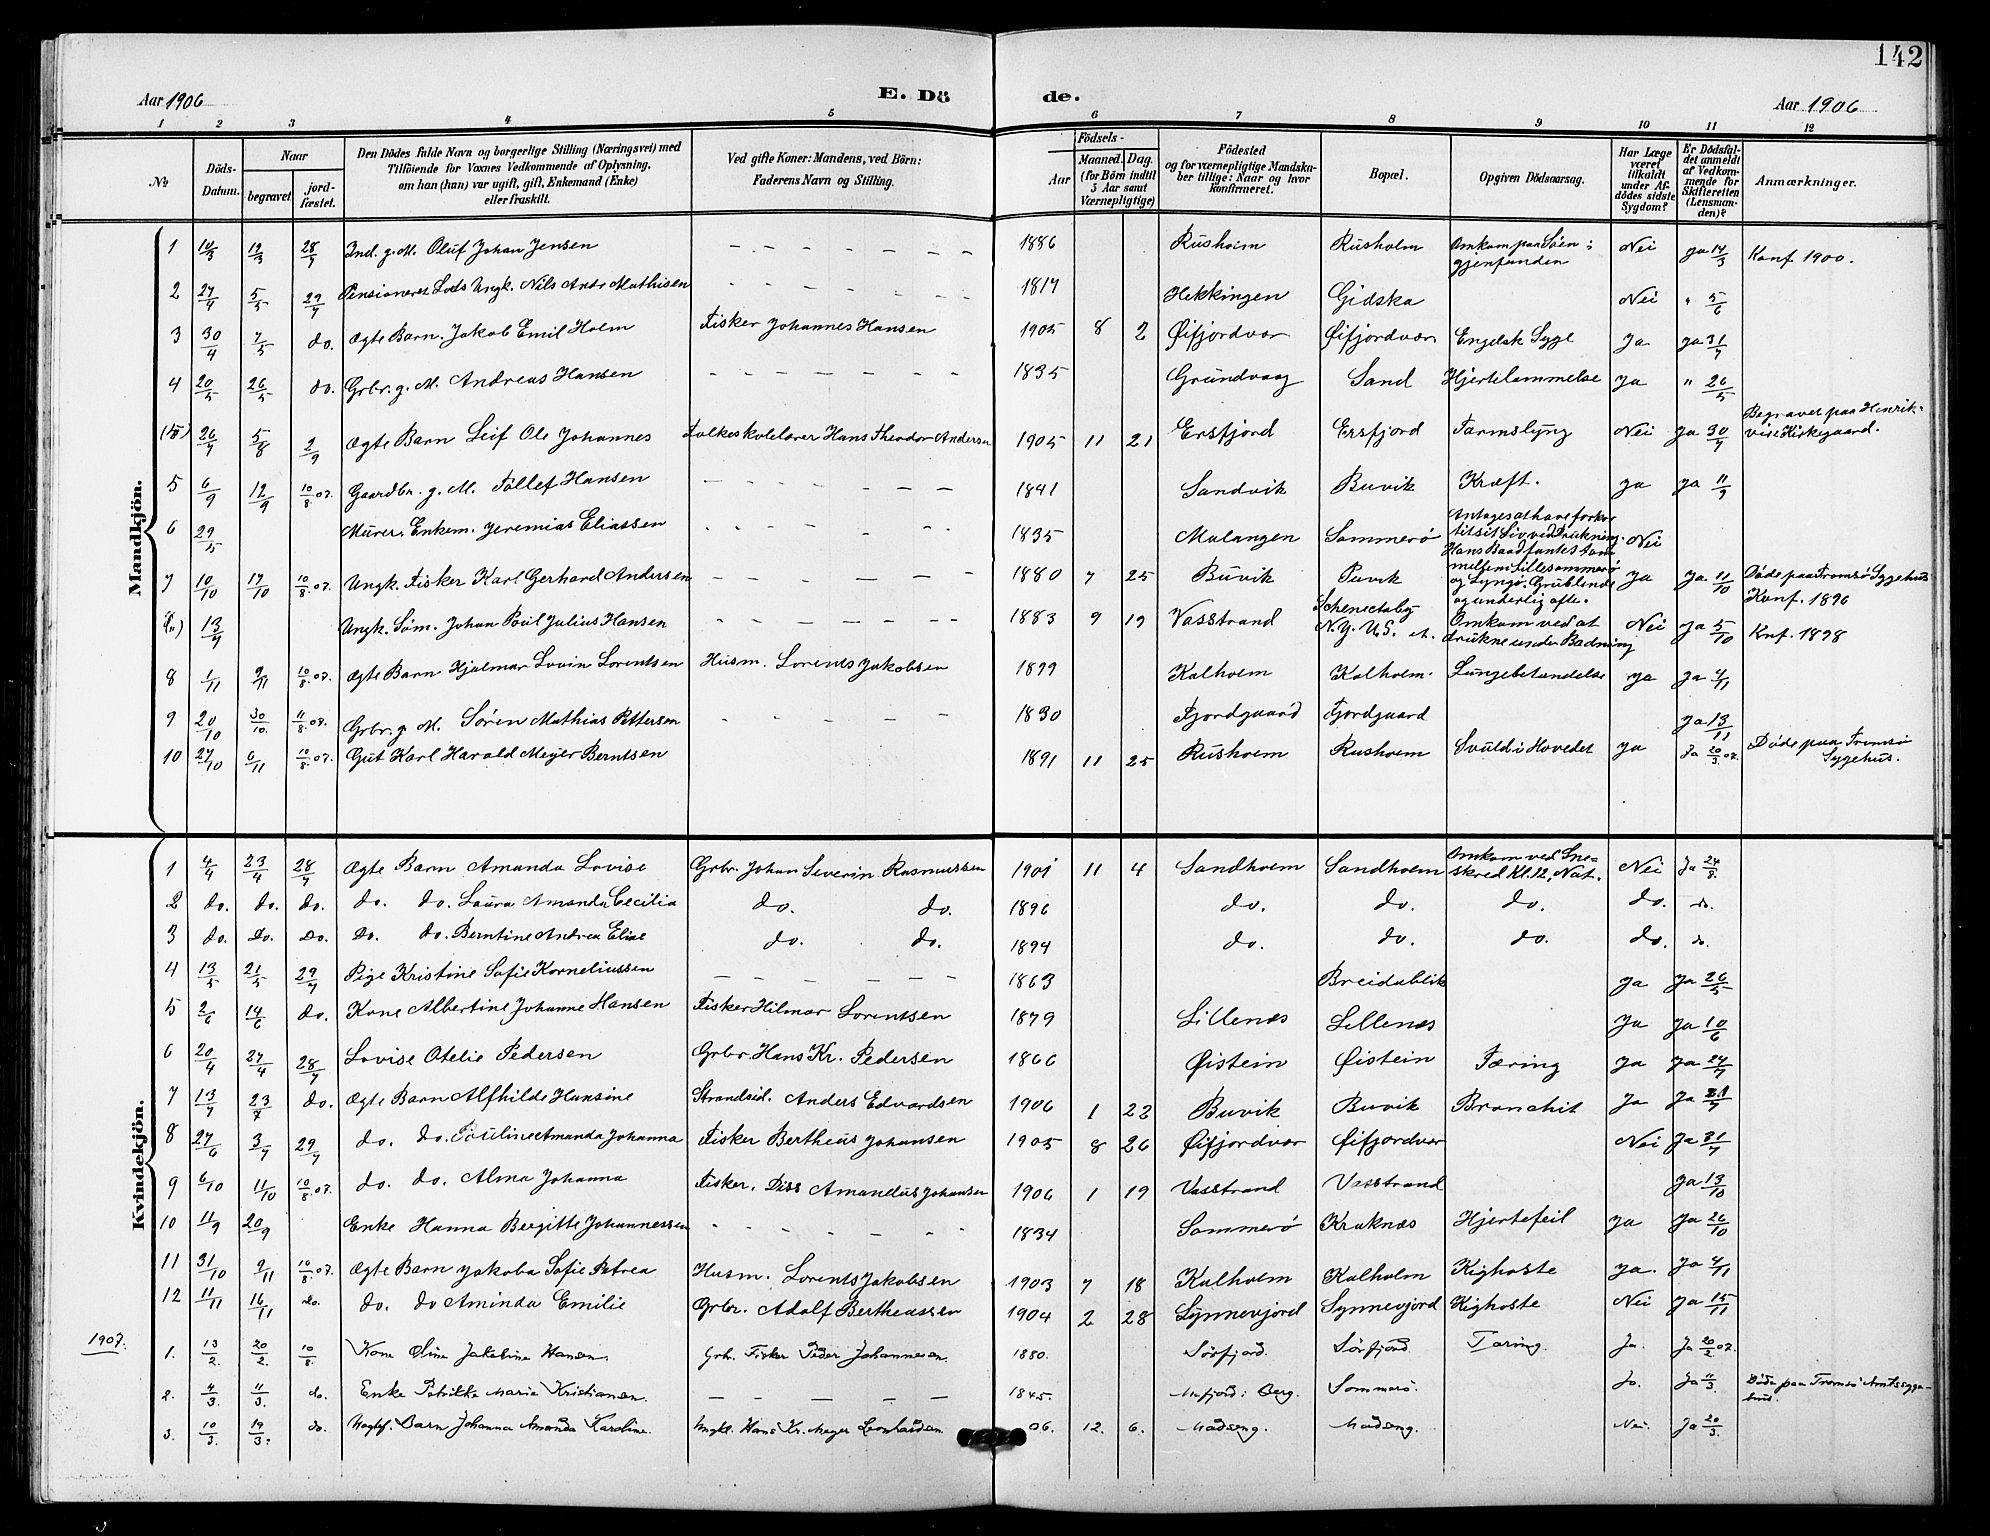 142
Aar 1906 E. Dö de. Aar 1906
1 2 3 4 5 6 7 8 9 10 11 12
№
Döds-Datum.
Naar
begravet
jord-fæstet.
Den Dödes fulde Navn og borgerlige Stilling (Næringsvei) med
Tilföiende for Voxnes Vedkommende af Oplysning,
om han (hun) var ugift, gift, Enkemand (Enke)
eller fraskilt.
Ved gifte Koner: Mandens, ved Börn:
Faderens Navn og Stilling.
Födsels-
Aar
Maaned. Dag.
(for Börn indtil
5 Aar samt
Værnepligtige)
Födested
og for værnepligtige Mandska-
ber tillige: Naar og hvor
Konfirmeret.
Bopæl.
Opgiven Dödsaarsag.
Har Læge
været
tilkaldt
under Af-
dödes sidste
Sygdom?
Er Dödsfal-
det anmeldt
af Vedkom-
mende for
Skifteretten
(Lensman-
den)?
Anmærkninger.
Mandkjön.
1 10/3 19/3 28/7 Ind. g. M. Oluf Johan Jensen – – – – – – 1886 Rusholm Rusholm Omkom paa Søen; gjenfunden Nei Ja 14/3 Konf. 1900.
2 27/4 5/5 29/7 Pensioneret Lods Ungk. Nils Andr Mathisen – – – – – – 1817 Hekkingen Gidska Nei " 5/6
3 30/4 7/5 do. Ægte Barn. Jakob Emil Holm Fisker Johannes Hansen 1905 8 2 Øifjordvær Øifjordvær Engelsk Syge Ja Ja 31/7
4 20/5 26/5 do. Grbr. g. M. Andreas Hansen – – – – – – 1835 Grundvaag Sand Hjertelammelse Ja " 26/5
26/7 5/8 2/9 Ægte Barn Leif Ole Johannes Folkeskolelærer Hans Theodor Andersen 1905 11 21 Ersfjord Ersfjord Tarmslyng Nei Ja 30/7 Begravet paa Henrik-vise Kirkegaard.
5 6/9 12/9 10/8.07. Gaardbr. g. M. Tollef Hansen – – – – – – 1841 Sandvik Buvik Kræft. Ja Ja 11/9
6 29/5 Murer. Enkem. Jeremias Eliassen – – – – – 1835 Malangen Sommerø Antages at have forkor-tet sit Liv ved Drukning. Hans Baad fantes tom mellem Lillesommerø og Lyngø. Grublende og underlig ofte. Nei
7 10/10 17/10 10/8.07. Ungk. Fisker Karl Gerhard Andersen – – – – – – 1880 7 25 Buvik Buvik Ja Ja 11/10 Døde paa Tromsø Sygehus Konf. 1896
13/7 Ungk. Søm. Johan Poul Julius Hansen – – – – – – 1883 9 19 Vasstrand Schenectaby N.Y. U.S. A. Omkom ved at drukne under Badning Nei Ja 5/10 Knf. 1898
8 1/11 9/11 10/8.07. Ægte Barn Hjalmar Lovin Lorentsen Husm. Lorents Jakobsen 1899 Kalholm Kalholm. Lungebetændelse Ja Ja 4/11
9 20/10 30/10. 11/8.07. Grbr. g. M. Søren Mathias Pettersen – – – – – – 1830 Fjordgaard Fjordgaard Ja 13/11
10 27/10 6/11 10/8.07. Gut Karl Harald Meyer Berntsen 1891 11 25 Rusholm Rusholm Svulst i Hovedet Ja Ja 20/3.07. Døde paa Tromsø Sygehus.
Kvindekjön.
1 4/4 23/4 28/7 Ægte Barn Amanda Lovise Grbr. Johan Severin Rasmussen 1901 11 4 Sandholm Sandholm Omkom ved Sne-skred Kl. 12, Nat. Nei Ja 24/8.
2 do. do. do. do. do. Laura Amanda Cecilia do. do. 1896 do. do. do. do. do.
3 do. do. do. do. do. Berntine Andrea Elise do. do. 1894 do. do. do. do. do.
4 13/5 21/5 29/7 Pige Kristine Sofie Korneliussen – – – – – 1863 Breidablik Ja Ja 26/5
5 2/6 14/6 do. Kone Albertine Johanne Hansen Fisker Hilmar Lorentsen 1879 Lillenes Lillenes Ja Ja 10/6
6 20/4 27/4 28/7 Lovise Otelie Pedersen Grbr. Hans Kr. Pedersen 1866 Øistein Øistein Tæring Ja Ja 27/7
7 13/7 23/7 do. Ægte Barn Alfhilde Hansine Strandsid. Anders Edvardsen 1906 1 22 Buvik Buvik Bronchit Ja Ja 31/7
8 27/6 3/7 29/7 do. do. Pauline Amanda Johanna Fisker Bertheus Johansen 1905 8 26 Øifjordvær Øifjordvær Nei Ja 31/7
9 6/10 11/10 10/8.07. do. do. Alma Johanna Fisker. Diss Amandus Johansen 1906 1 19 Vasstrand Vasstrand Ja 13/10
10 11/9 20/9 Enke Hanna Bergitte Johannessen – – – – – – 1834 Sommerø Kraknæs Hjertefeil Ja Ja 26/10
11 31/10 9/11 10/8.07. Ægte Barn Jakoba Sofie Petrea Husm. Lorents Jakobsen 1903 7 18 Kalholm Kalholm Kighoste Ja. Ja 4/11
12 11/11 16/11 do. do. do Aminda Emilie Grbr. Adolf Bertheussen 1904 2 28 Lynnevjord Lynnevjord Kighoste Nei Ja 15/11
1907.
1. 13/2. 20/2. 10/8. Kone Oline Jakobine Hansen. Grb. Fisker Peder Johannesen 1880. Sörfjord. Sörfjord Tæring. Ja. Ja 20/2 07.
2. 4/3. 11/3. do. Enke Petrikke Marie Kristiansen. – – – – – 1845. Mefjord i Berg. Sommerö. Ja. Ja 11/3. Döde paa Tromsö Amtssygehus.
3. 10/3. 19/3. do. Uægte Barn Johanna Amanda Karoline. Ungkl. Hans Kr. Meyer Leonhardsen 06. 12. 6. Madseng. Madseng. Nei. Ja 20/3.